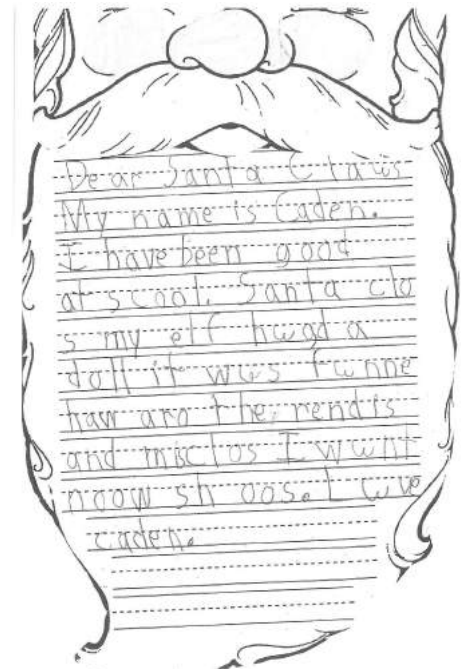 Dear Santa Claws
My name is Caden.
I have been good
at scool. Santa clo
s my elf hwgd a
doll it wus funne
haw aro the rendis
and misclos I wunt
noow sh oos. Luve
caden.